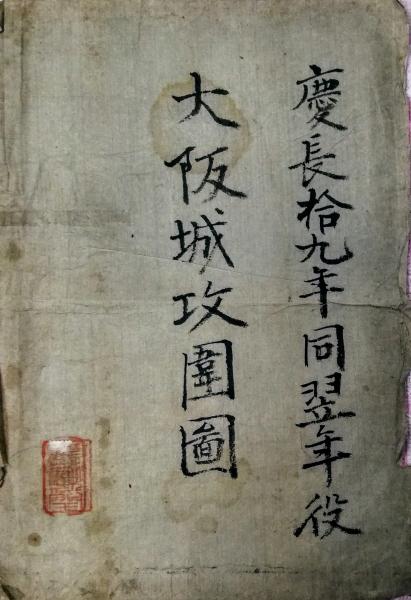 慶長拾九年同翌年役
大阪城攻圍啚